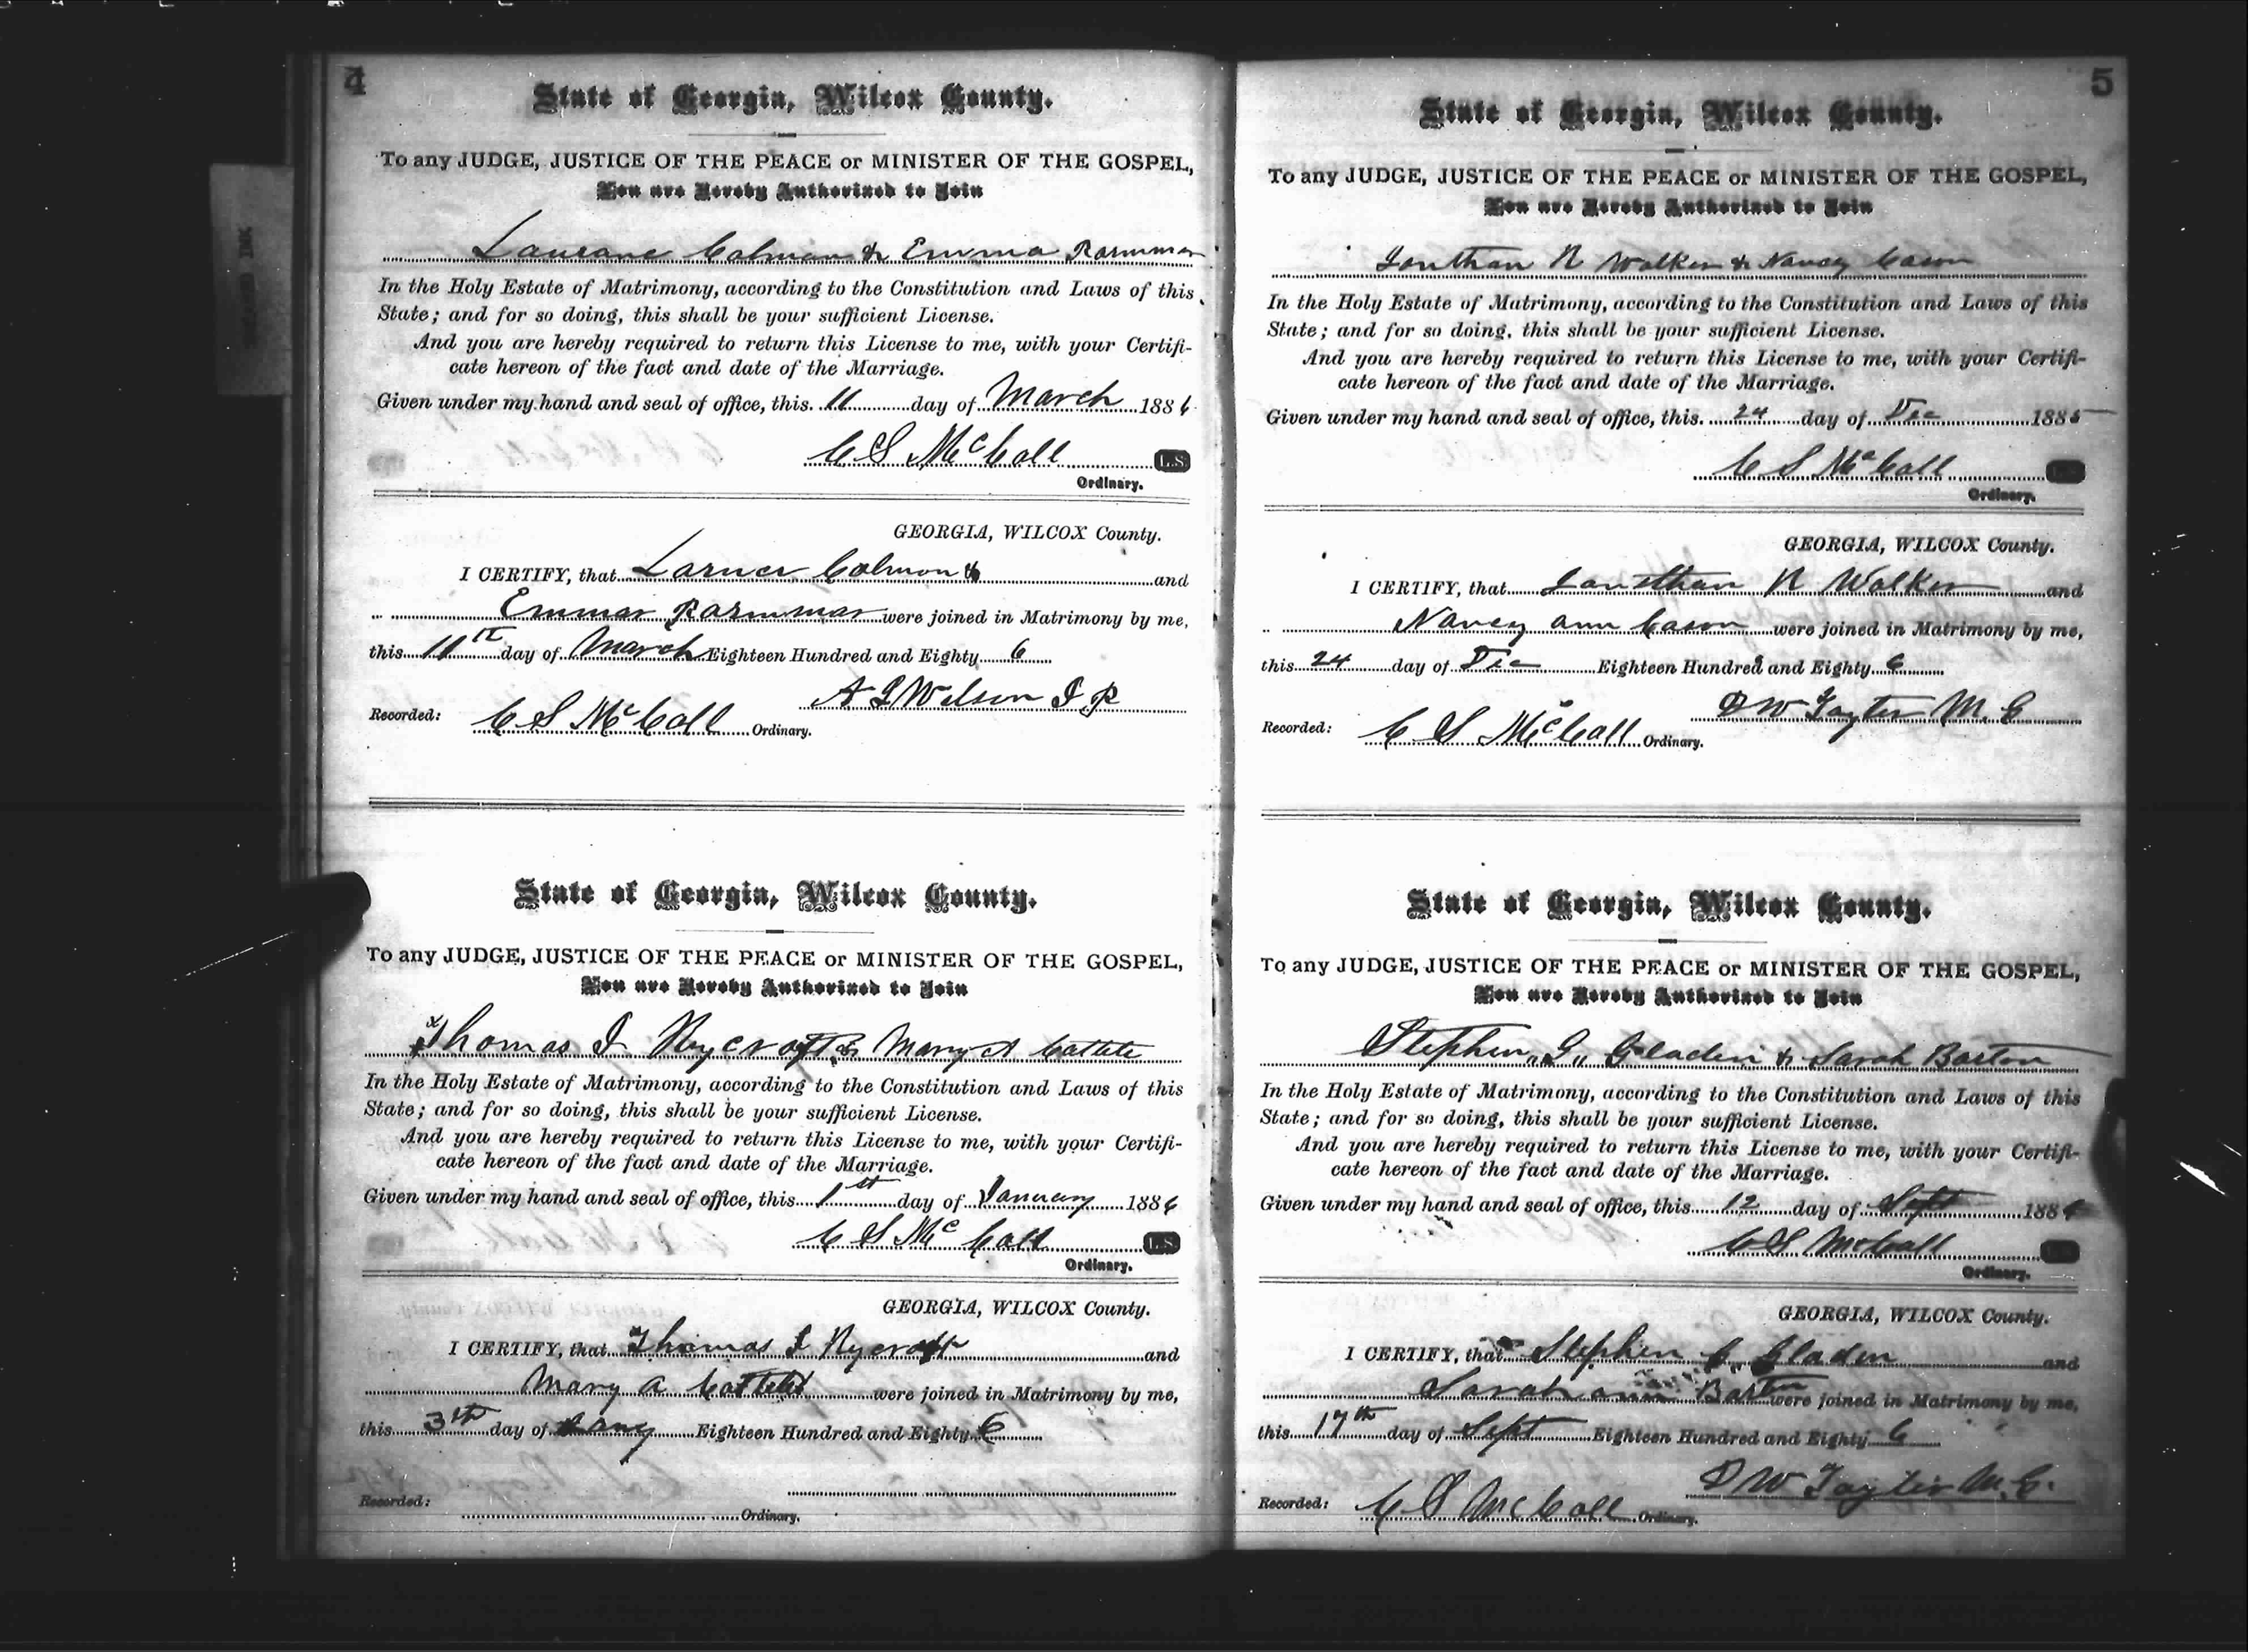 4
State of Georgia, Wilcox County.
To any JUDGE, JUSTICE OF THE PEACE or MINISTER OF THE GOSPEL,
You are Hereby Authorized to Join
Laurane Colman & Emma Rammar
In the Holy Estate of Matrimony, according to the Constitution and Laws of this
State; and for so doing, this shall be your sufficient License.
And you are hereby required to return this License to me, with your Certifi-
cate hereon of the fact and date of the Marriage.
Given under my hand and seal of office, this 11 day of March 1886
C S McCall L.S.
Ordinary.
GEORGIA, WILCOX County.
I CERTIFY, that Larner Colmon & and
Emmar Rammar were joined in Matrimony by me,
this 11th day of March Eighteen Hundred and Eighty 6
A L Wilson J. P
Recorded: C S McCall Ordinary.
State of Georgia, Wilcox County.
To any JUDGE, JUSTICE OF THE PEACE or MINISTER OF THE GOSPEL,
You are Hereby Authorized to Join
Thomas J Rycroft & Mary A
In the Holy Estate of Matrimony, according to the Constitution and Laws of this
State; and for so doing, this shall be your sufficient License.
And you are hereby required to return this License to me, with your Certifi-
cate hereon of the fact and date of the Marriage.
Given under my hand and seal of office, this 1st day of January 1886
C S McCall L.S.
Ordinary.
GEORGIA, WILCOX County.
I CERTIFY, that Thomas J Rycroft and
Mary A were joined in Matrimony by me,
this 3th day of Jany Eighteen Hundred and Eighty 6
Recorded: Ordinary.
5
State of Georgia, Wilcox County.
To any JUDGE, JUSTICE OF THE PEACE or MINISTER OF THE GOSPEL,
You are Hereby Authorized to Join
Jonthan R Walker & Nancy Cason
In the Holy Estate of Matrimony, according to the Constitution and Laws of this
State; and for so doing, this shall be your sufficient License.
And you are hereby required to return this License to me, with your Certifi-
cate hereon of the fact and date of the Marriage.
Given under my hand and seal of office, this 24 day of Dec 1885
C S McCall
Ordinary.
GEORGIA, WILCOX County.
I CERTIFY, that Jonathan R Walker and
Nancy ann Cason were joined in Matrimony by me,
this 24 day of Dec Eighteen Hundred and Eighty 6
D W Tayler M. G
Recorded: C S McCall Ordinary.
State of Georgia, Wilcox County.
To any JUDGE, JUSTICE OF THE PEACE or MINISTER OF THE GOSPEL,
You are Hereby Authorized to Join
Stephen "G" Gladen & Sarah Barton
In the Holy Estate of Matrimony, according to the Constitution and Laws of this
State; and for so doing, this shall be your sufficient License.
And you are hereby required to return this License to me, with your Certifi-
cate hereon of the fact and date of the Marriage.
Given under my hand and seal of office, this 12 day of Sept 1886
C S McCall
Ordinary.
GEORGIA, WILCOX County.
I CERTIFY, that Stephen G Gladen and
Sarah ann Barton were joined in Matrimony by me,
this 17th day of Sept Eighteen Hundred and Eighty 6
D W Tayler M. G.
Recorded: C S McCall Ordinary.